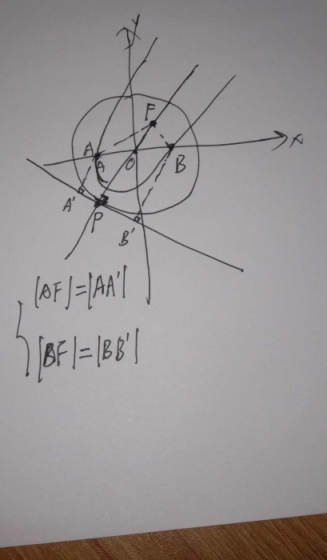 y
F
A O B x
A
A'
P
B'
|AF|=|AA'|
|BF|=|BB'|